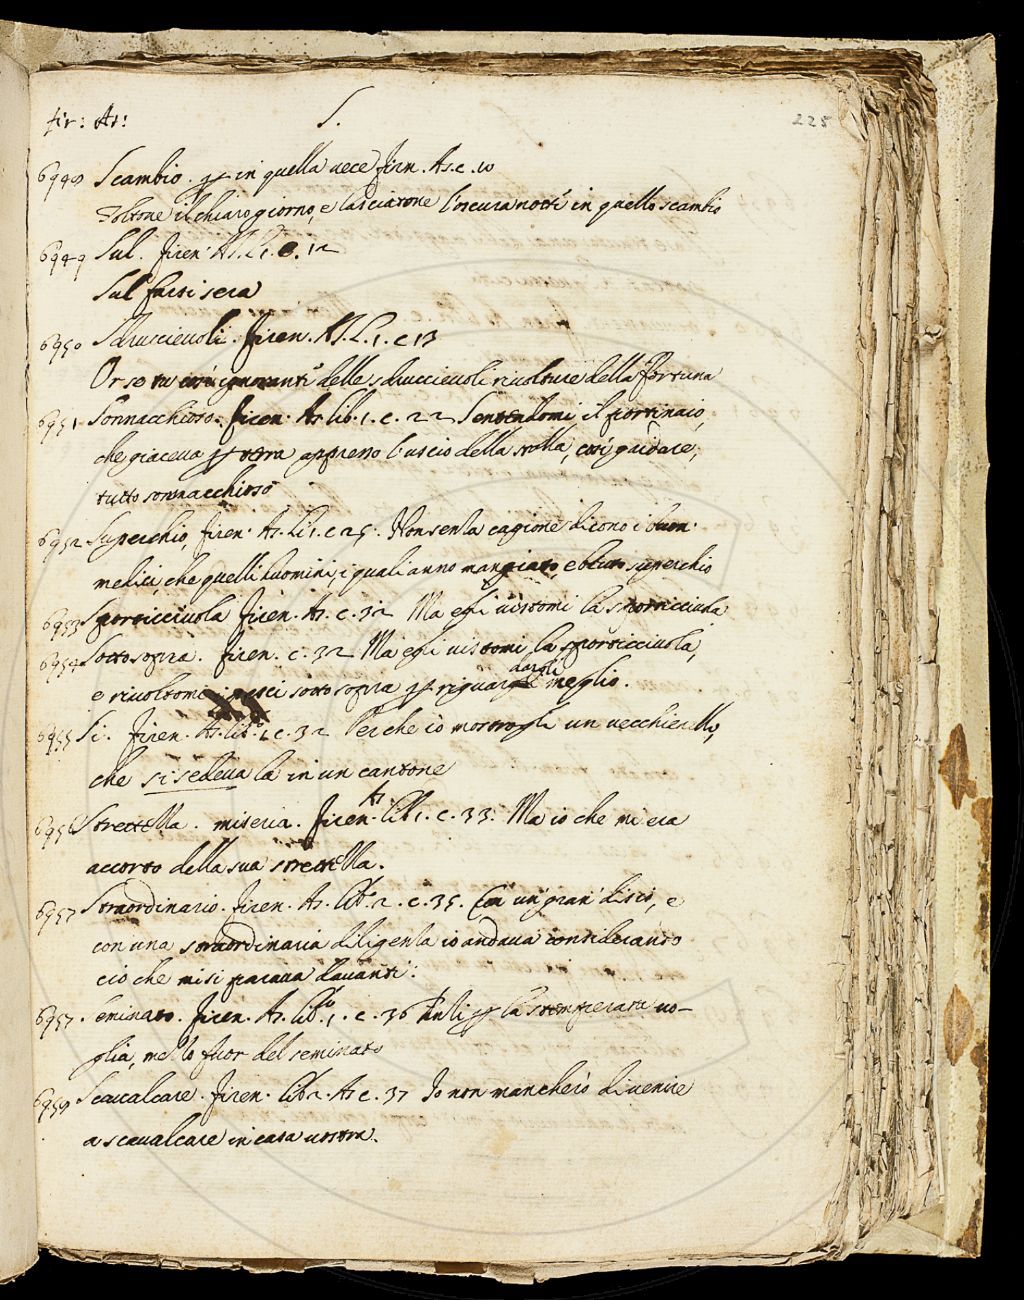 fir: As: S. 225
6948 Scambio. p in quella vece firen. As. c. 10
Toltone il chiaro giorno, e lasciatone l'oscura notte in quello scambio
6949 Sul. firen. As. L. 1. c. 12
Sul farsi sera
6950 Sdruscievoli. firen. As. L. 1. c 13
Or se tu così ignoranti delle sdruccievoli rivolture della Fortuna
6951 Sonnacchioso. firen. As. lib. 1. c. 22 Sentendomi il portinaio,
che giaceva p terra appresso l'uscio della stalla, così gridare,
tutto sonnacchioso
6952 Superchio, firen. As. li 1. c 25. Non senza cagione dicono i buon
medici, che quelli huomini, i quali anno mangiato, e beuto superchio
6953 Sporticciuola firen. As. c. 32 Ma egli vistomi la sporticciuola
6954 Sottosopra. firen. c. 32 Ma egli vistomi la sporticciuola,
e rivoltomi i pesci sottosopra p riguardargli meglio.
6955 Si. firen. As. lib. 1 c. 32 Perche io mostrogli un vecchierello,
che si sedeva la in un cantone
6956 Strettezza. miseria. firen. As. lib 1. c. 33. Ma io che mi era
accorto della sua strettezza.
6957 Straordinario. firen. As. lib. 2. c. 35. Con un gran disio, e
con una straordinaria diligenza io andava considerando
ciò che mi si parava davanti.
6957. Seminato. firen. As. lib. 1. c. 36 Anzi p la stemperata vo-
glia, messo fuor del seminato
6958 Scavalcare. firen. lib 2. As c. 37 Io non mancherò di venire
a scavalcare in casa vostra.